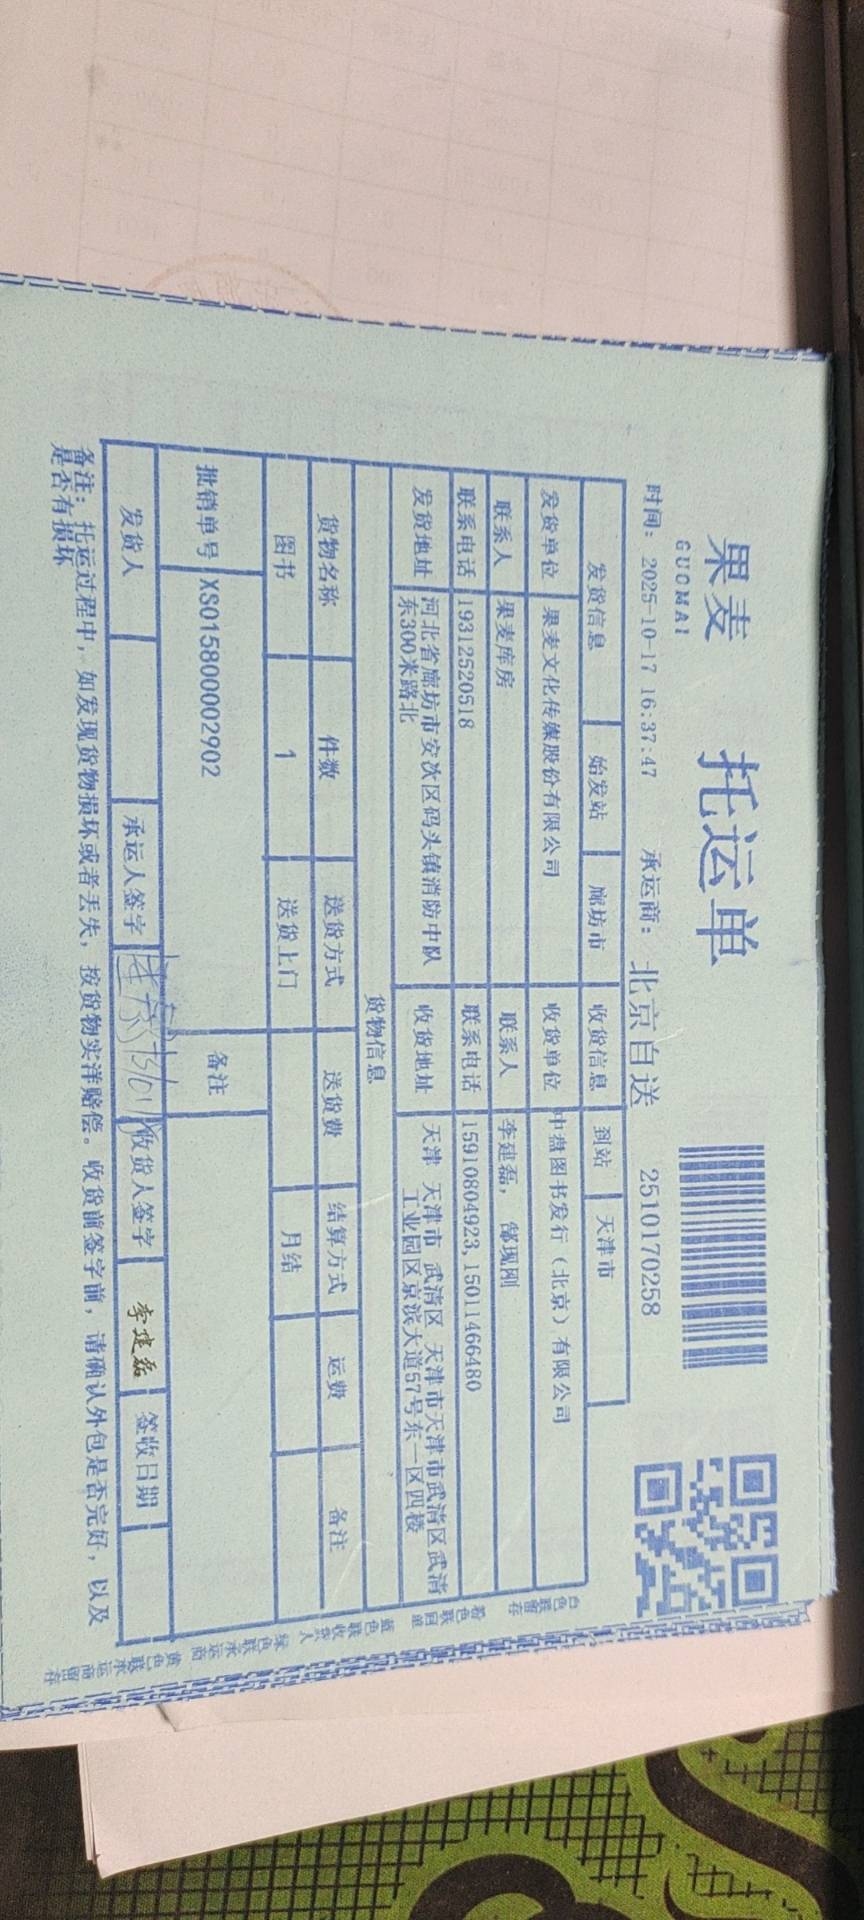 果麦
GUOMAI
托运单
时间: 2025-10-17 16:37:47 承运商: 北京自送 2510170258
发货信息 始发站 廊坊市 收货信息 到站 天津市
发货单位 果麦文化传媒股份有限公司 收货单位 中盘图书发行（北京）有限公司
联系人 果麦库房 联系人 李建磊, 郜现刚
联系电话 19312520518 联系电话 15910804923,15011466480
发货地址 河北省廊坊市安次区码头镇消防中队
东300米路北
收货地址 天津 天津市 武清区 天津市天津市武清区武清
工业园区京滨大道57号东一区四楼
货物信息
货物名称 件数 送货方式 送货费 结算方式 运费 备注
图书 1 送货上门 月结
批销单号 XS015800002902 备注
发货人 承运人签字 收货人签字 李建磊 签收日期
备注: 托运过程中, 如发现货物损坏或者丢失, 按货物实洋赔偿。收货前签字前, 请确认外包是否完好, 以及
是否有损坏
白色联留存
粉色联回单
蓝色联收货人
绿色联承运商
黄色联承运商留存